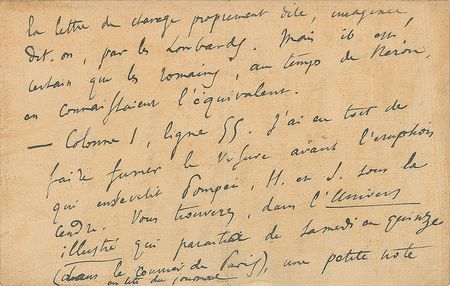 la lettre du change proprement dite, imaginée,
dit-on, par les Lombards. Mais il est
certain que les romains, au temps de Néron,
en connaissaient l'équivalent.
— Colonne 1, ligne 55. J'ai eu tort de
faire fumer le Vésuve avant l'éruption
qui ensevelit Pompéi, H. et S. sous la
cendre. Vous trouverez, dans l'Univers
illustré qui paraitra de samedi en quinze
(dans le courrier de Paris), une petite note
en tête du journal